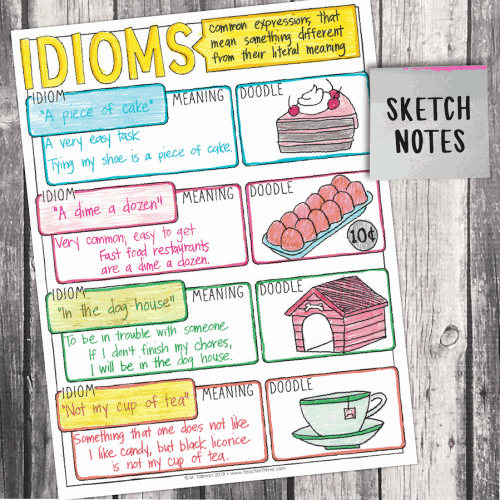 IDIOMS
common expressions that
mean something different
from their literal meaning
SKETCH
NOTES
IDIOM
MEANING
DOODLE
"A piece of cake"
A very easy task
Tying my shoe is a piece of cake.
IDIOM
MEANING
DOODLE
"A dime a dozen"
Very common, easy to get
Fast food restaurants
are a dime a dozen.
10¢
IDIOM
MEANING
DOODLE
"In the dog house"
To be in trouble with someone
If I don't finish my chores,
I will be in the dog house.
IDIOM
MEANING
DOODLE
"Not my cup of tea"
Something that one does not like
I like candy, but black licorice
is not my cup of tea.
© M. Tallman 2018 • www.TeacherThrive.com